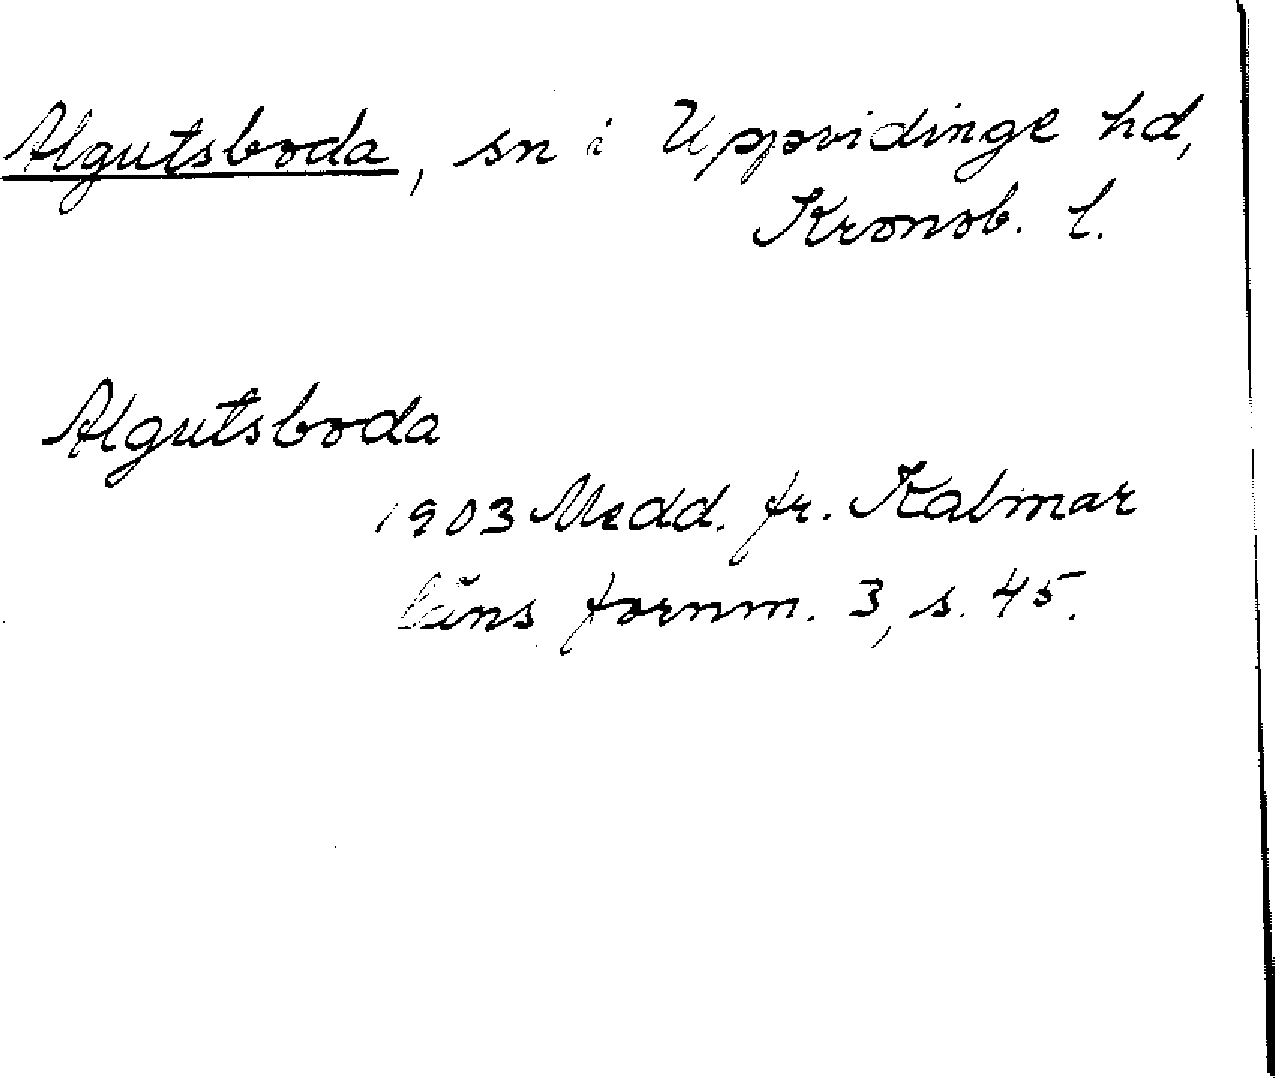 Algutsboda, sn i Uppvidinge hd,
Kronob. l.
Algutsboda
1903 Medd. fr. Kalmar
läns fornm. 3, s. 45.